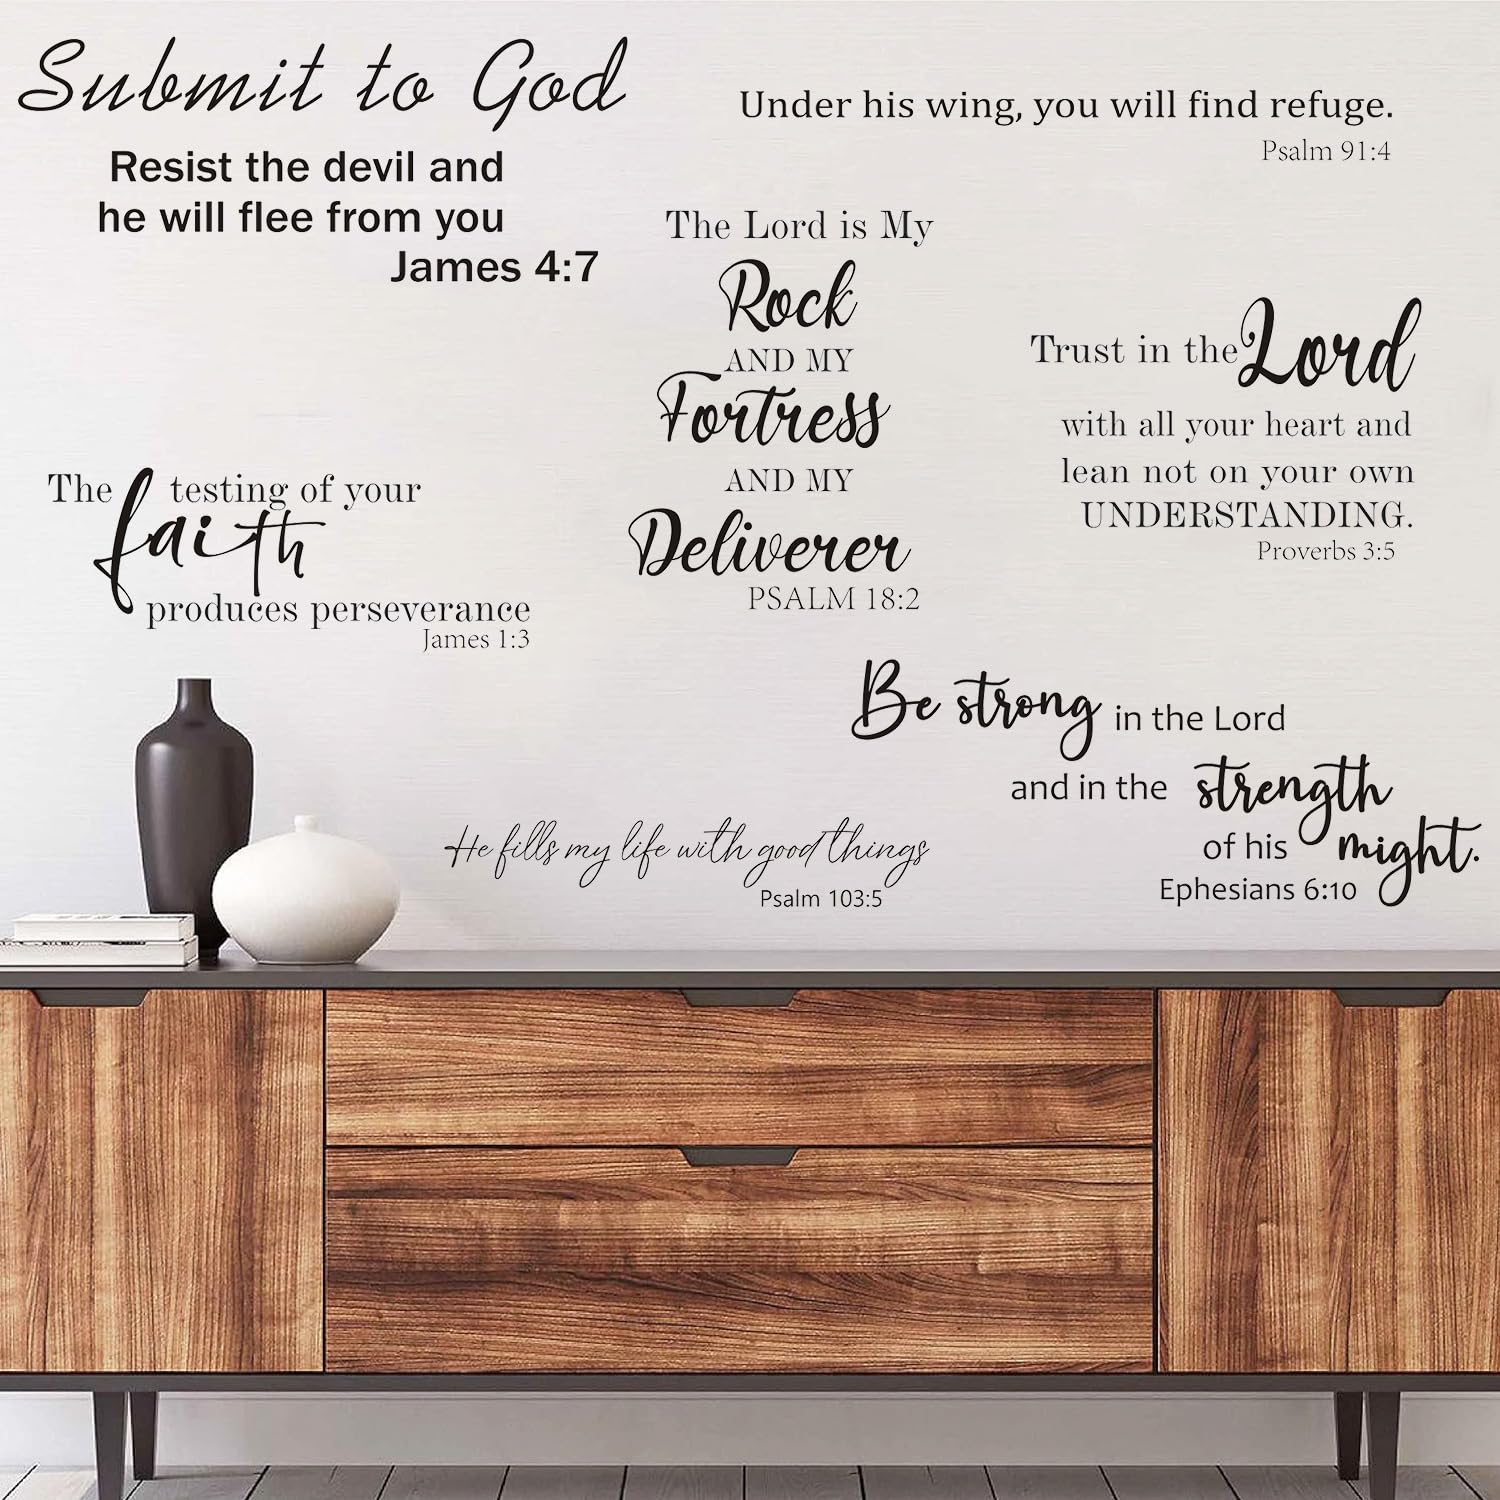 Submit to God
Resist the devil and
he will flee from you
James 4:7
Under his wing, you will find refuge.
Psalm 91:4
The Lord is My
Rock
AND MY
Fortress
AND MY
Deliverer
PSALM 18:2
Trust in the Lord
with all your heart and
lean not on your own
UNDERSTANDING.
Proverbs 3:5
The testing of your
faith
produces perseverance
James 1:3
Be strong in the Lord
and in the strength
of his might.
Ephesians 6:10
He fills my life with good things
Psalm 103:5